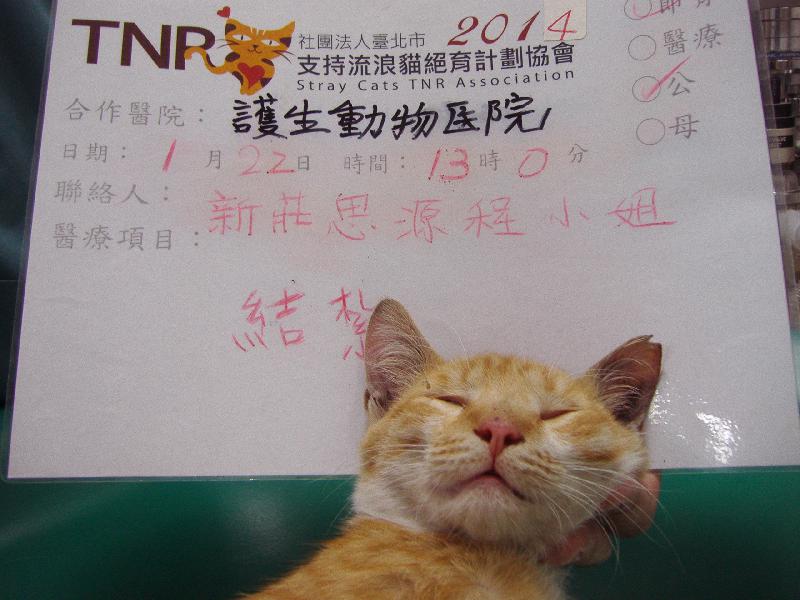 TNR
社團法人臺北市 2014
支持流浪貓絕育計劃協會
Stray Cats TNR Association
醫療
公
母
合作醫院：護生動物医院
日期：1月22日 時間：13時0分
聯絡人：新莊思源程小姐
醫療項目：
結紮